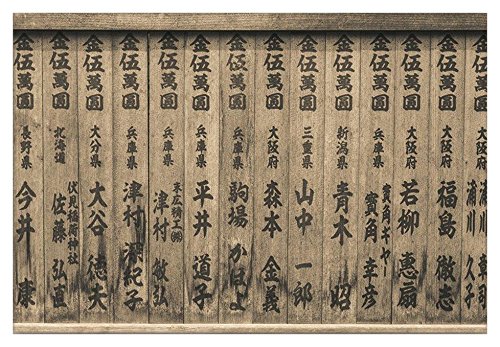 金伍萬圓 大阪府 章司
久子
金伍萬圓 大阪府 福島 徹志
金伍萬圓 大阪府 若柳 惠扇
金伍萬圓 兵庫県 寳角ギヤー
寳角 幸彦
金伍萬圓 新潟県 青木 昭
金伍萬圓 三重県 山中 一郎
金伍萬圓 大阪府 森本 金義
金伍萬圓 兵庫県 駒場 かほよ
金伍萬圓 兵庫県 平井 道子
金伍萬圓 兵庫県 末広精工㈱
津村 敏弘
金伍萬圓 兵庫県 津村 紀子
金伍萬圓 大分県 大谷 徳夫
金伍萬圓 北海道 伏見稲荷神社
佐藤 弘直
金伍萬圓 長野県 今井 康